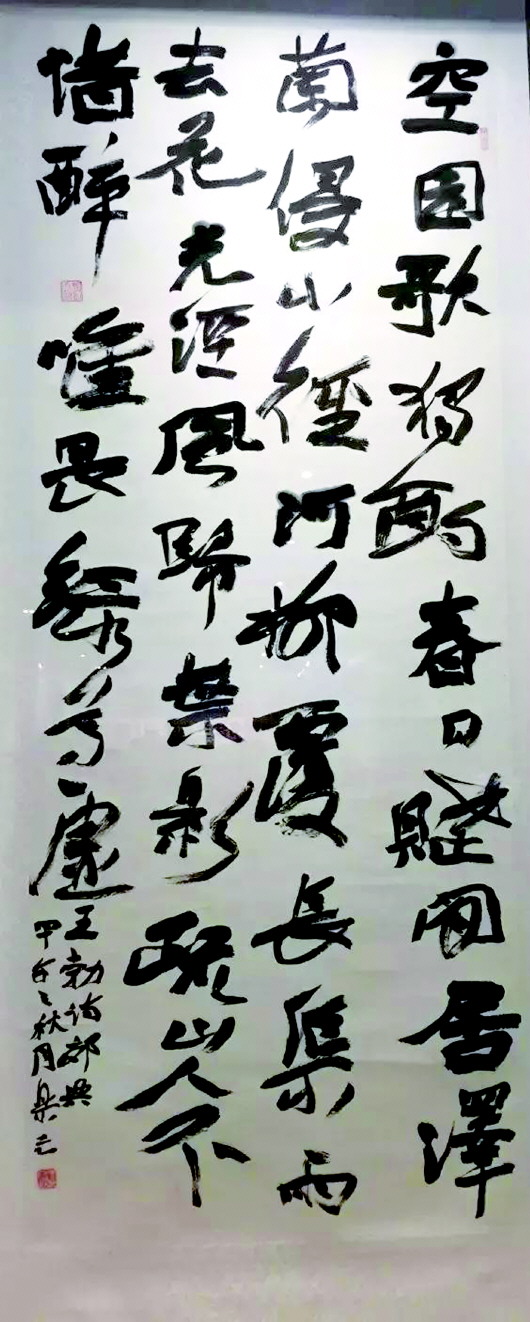 空園歌獨酌春日賦閑居澤
蘭侵小徑河柳覆長渠雨
去花光溼風歸葉影疏山人不
惜醉唯畏綠尊虛
王勃詩郊興
甲午之秋月